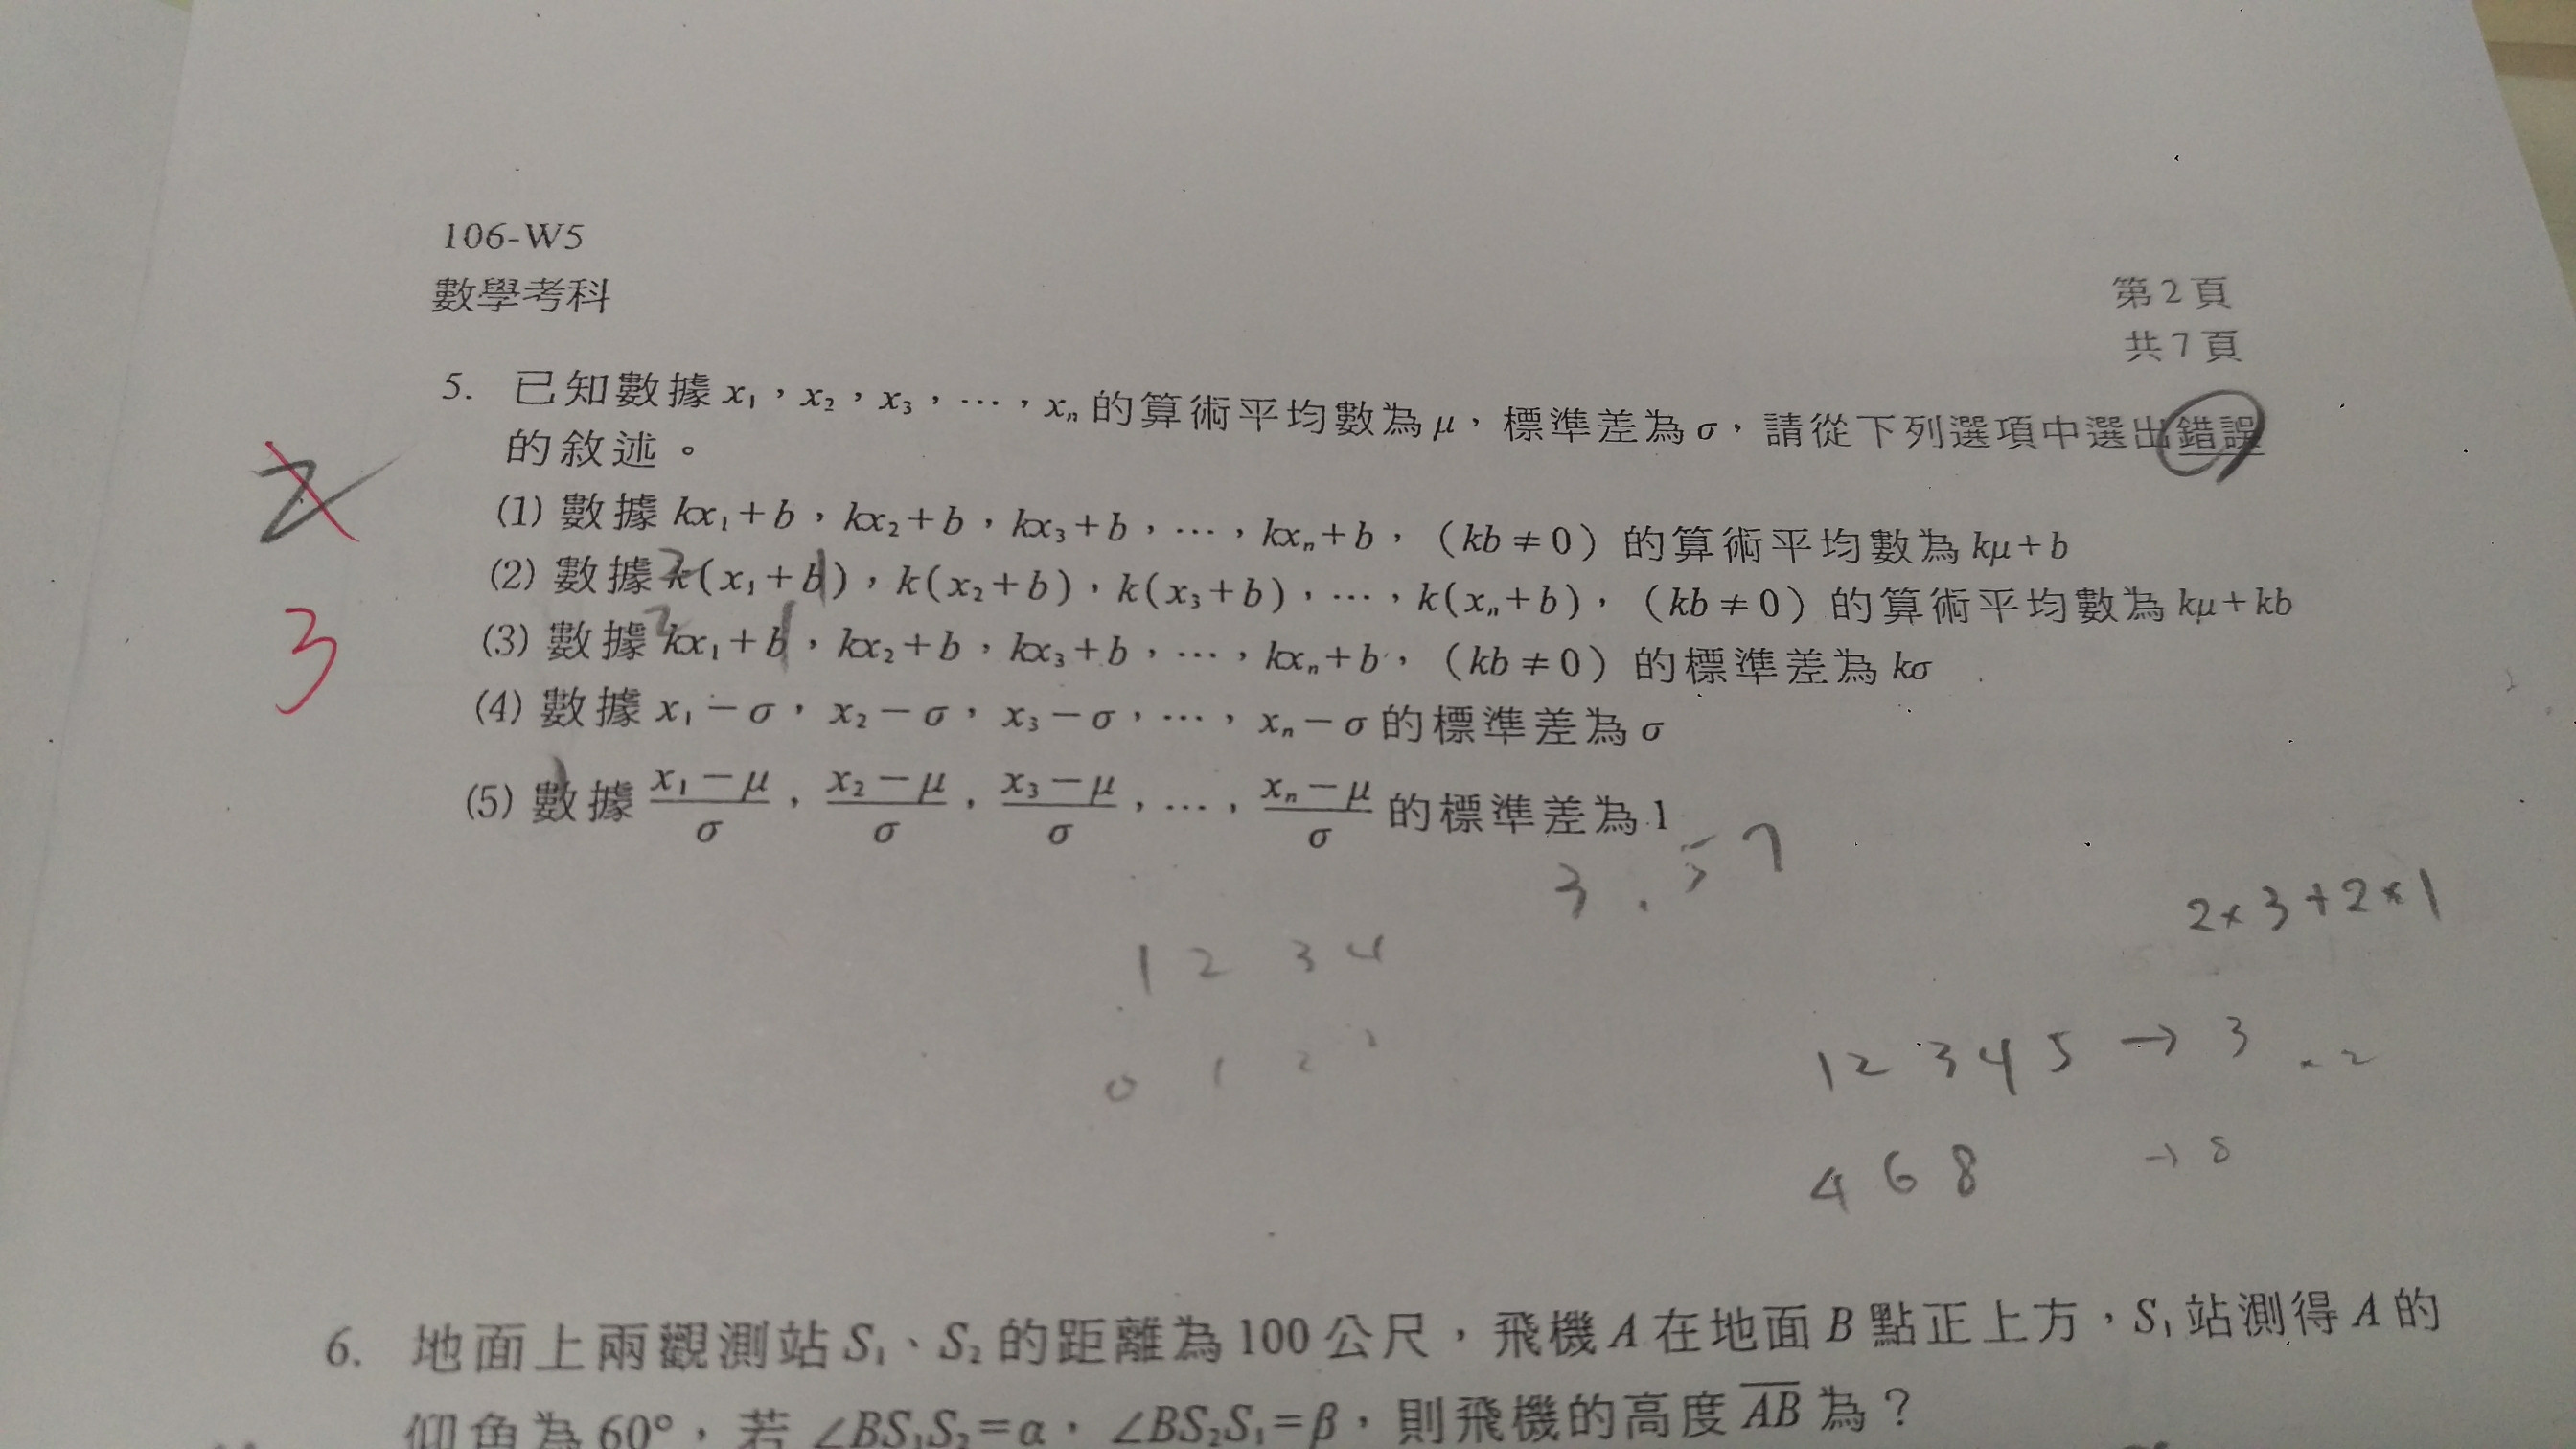 106-W5
數學考科
第2頁
共7頁
5. 已知數據 x₁,x₂,x₃,…,xₙ 的算術平均數為 μ,標準差為 σ,請從下列選項中選出錯誤
的敘述。
2
(1) 數據 kx₁+b,kx₂+b,kx₃+b,…,kxₙ+b,(kb≠0)的算術平均數為 kμ+b
2 1
(2) 數據 k(x₁+b),k(x₂+b),k(x₃+b),…,k(xₙ+b),(kb≠0)的算術平均數為 kμ+kb
3
2 1
(3) 數據 kx₁+b,kx₂+b,kx₃+b,…,kxₙ+b,(kb≠0)的標準差為 kσ
(4) 數據 x₁-σ,x₂-σ,x₃-σ,…,xₙ-σ 的標準差為 σ
(5) 數據 (x₁-μ)/σ,(x₂-μ)/σ,(x₃-μ)/σ,…,(xₙ-μ)/σ 的標準差為 1
3 . 5 7
2×3+2×1
1 2 3 4
1 2 3 4 5 → 3 ×2
0 1 2
4 6 8 → 8
6. 地面上兩觀測站 S₁、S₂ 的距離為 100 公尺,飛機 A 在地面 B 點正上方,S₁ 站測得 A 的
仰角為 60°,若 ∠BS₁S₂=α,∠BS₂S₁=β,則飛機的高度 AB 為?